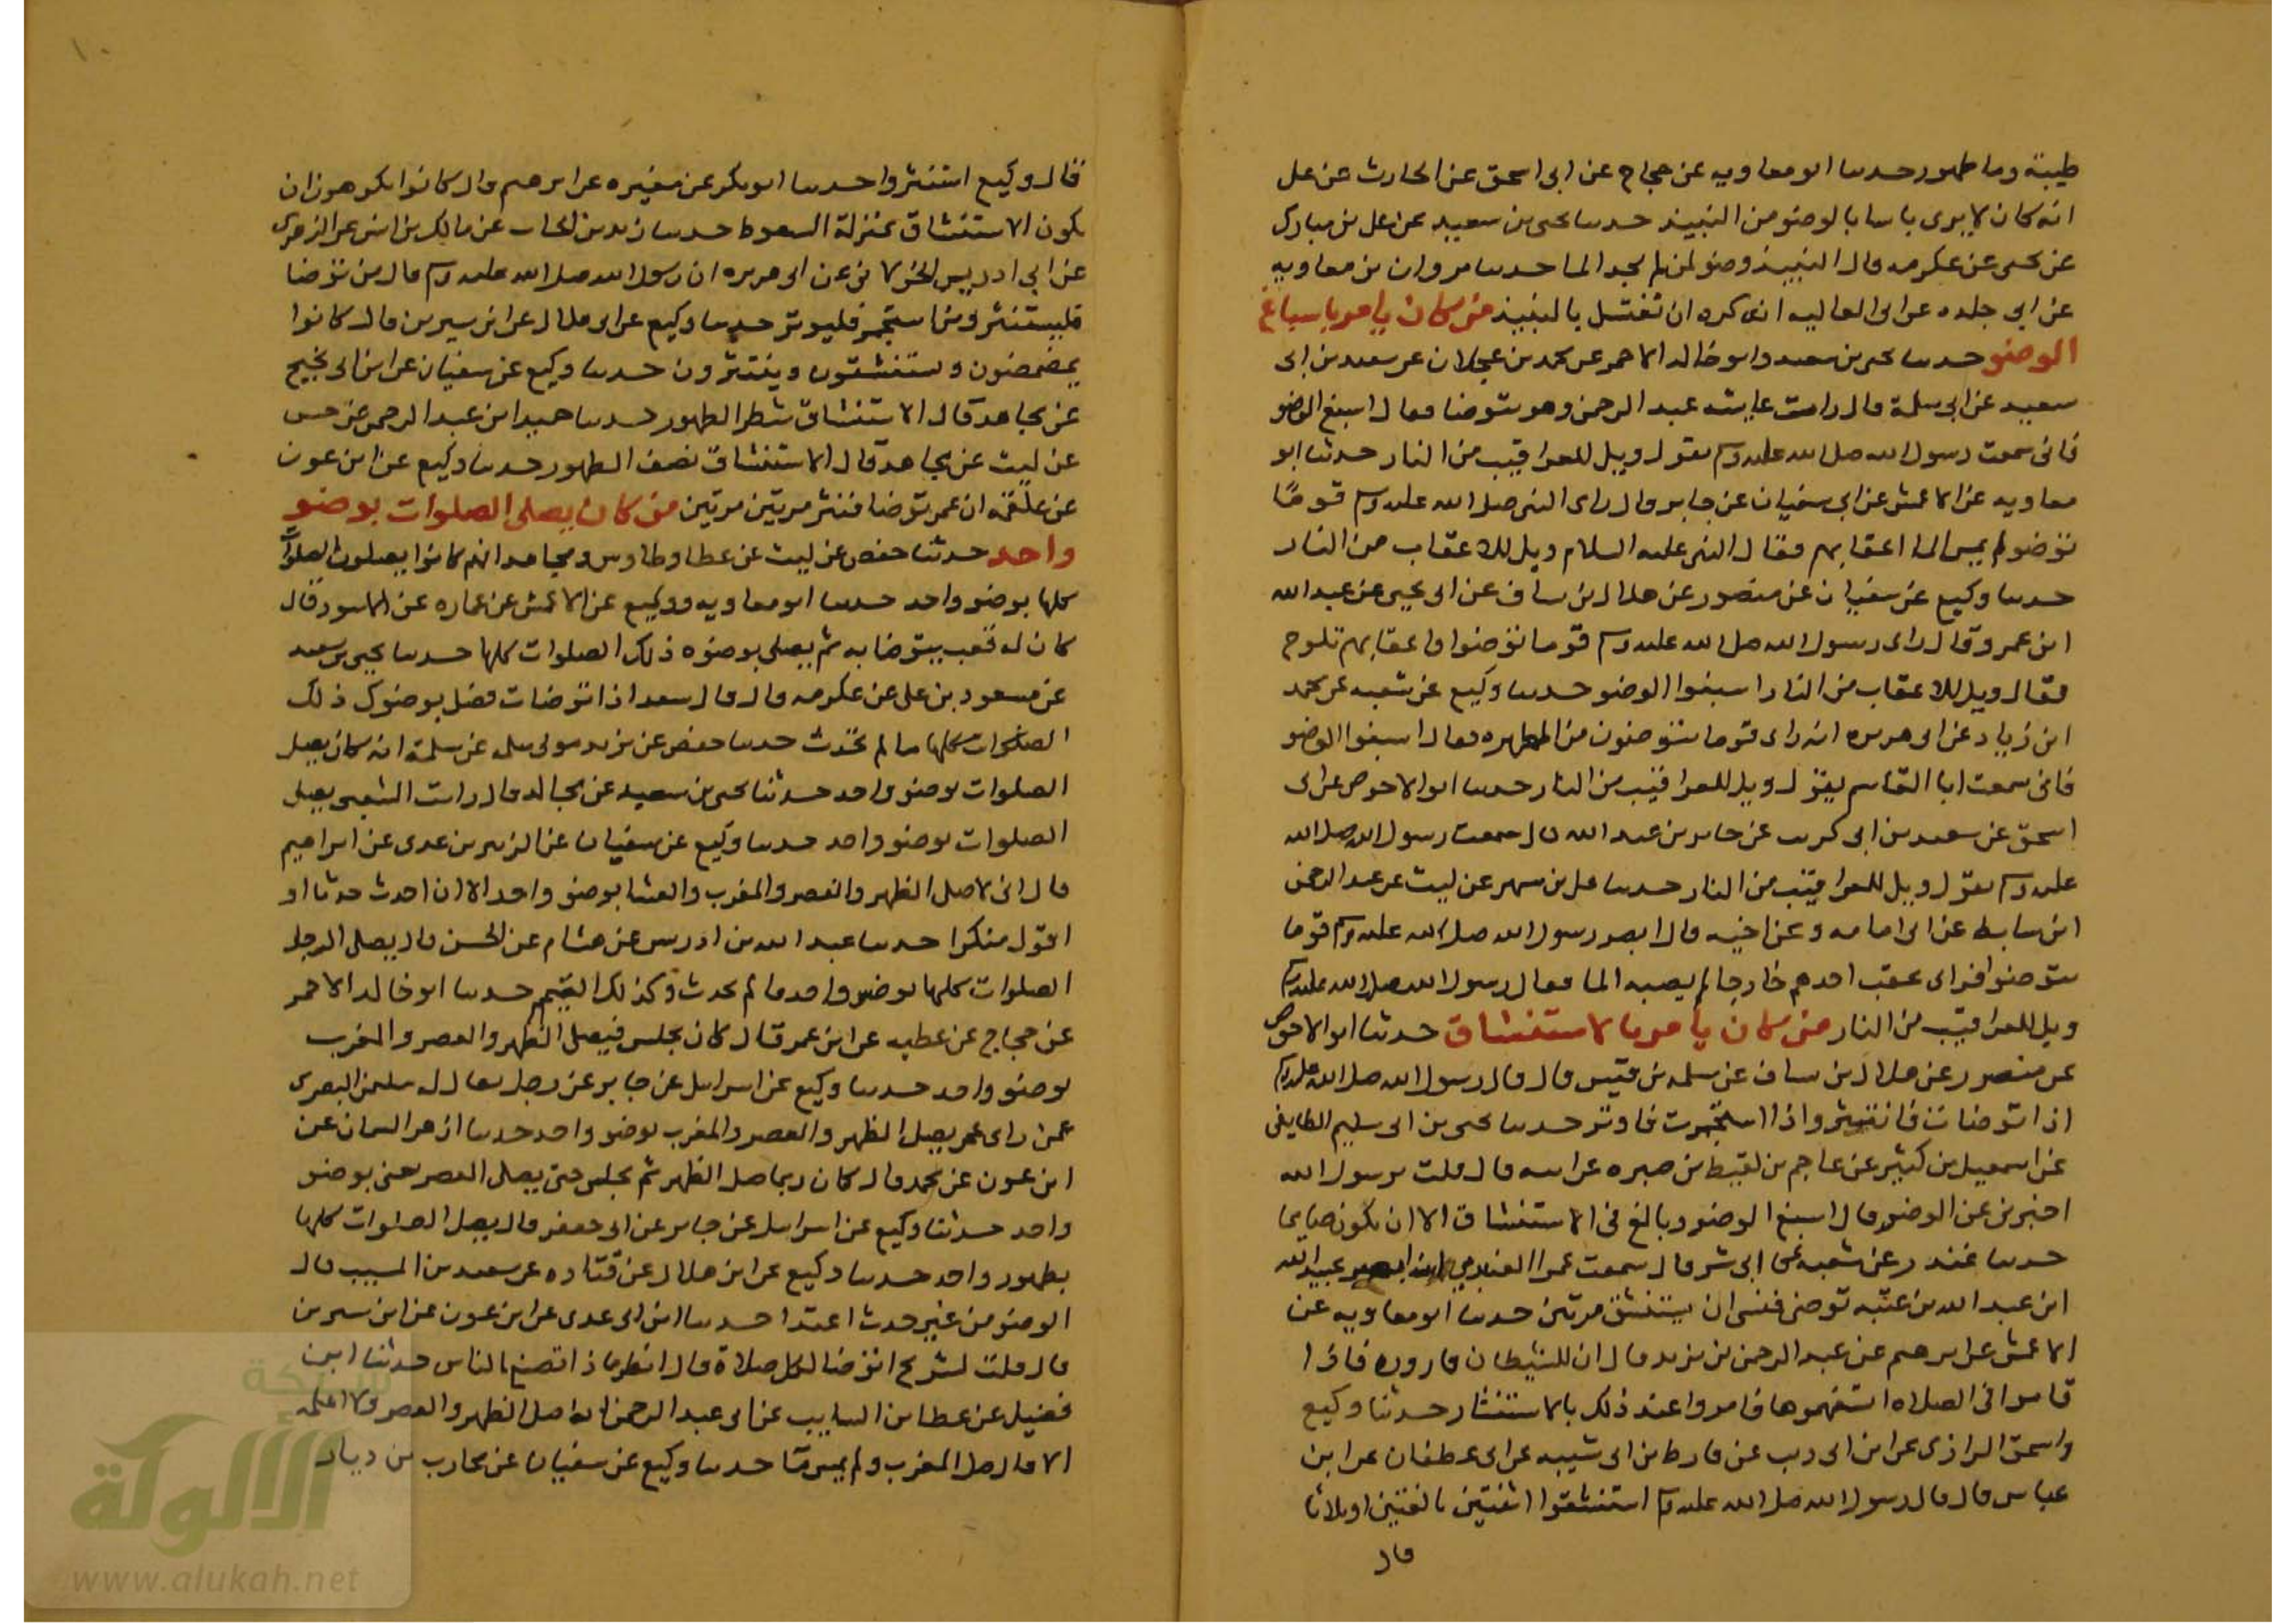 طيبة وما طهور حدثنا ابو معاويه عن حجاج عن ابى اسحق عن الحارث عن على
انه كان لا يرى باسا بالوضو من النبيذ حدثنا يحيى بن سعيد عن على بن مبارك
عن يحيى عن عكرمه قال النبيذ وضو لمن لم يجد الما حدثنا مروان بن معاويه
عن ابى خلده عن ابى العاليه انه كره ان تغتسل بالنبيذ من كان يامر باسباغ
الوضو حدثنا يحيى بن سعيد وابو خالد الاحمر عن محمد بن عجلان عن سعيد بن ابى
سعيد عن ابى سلمة قال رات عايشه عبد الرحمن وهو يتوضا فقال اسبغ الوضو
فانى سمعت رسول الله صلى الله عليه وسلم يقول ويل للعراقيب من النار حدثنا ابو
معاويه عن الاعمش عن ابى سفيان عن جابر قال راى النبى صلى الله عليه وسلم قوما
توضو لم يمس الما اعقابهم فقال النبى عليه السلام ويل للاعقاب من النار
حدثنا وكيع عن سفيان عن منصور عن هلال بن ساف عن ابى يحيى عن عبد الله
ابن عمرو قال راى رسول الله صلى الله عليه وسلم قوما توضوا واعقابهم تلوح
فقال ويل للاعقاب من النار اسبغوا الوضو حدثنا وكيع عن شعبه عن محمد
ابن زياد عن ابى هريره انه راى قوما يتوضون من المطهره فقال اسبغوا الوضو
فانى سمعت ابا القاسم يقول ويل للعراقيب من النار حدثنا ابو الاحوص عن ابى
اسحق عن سعيد بن ابى كريب عن جابر بن عبد الله قال سمعت رسول الله صلى الله
عليه وسلم يقول ويل للعراقيب من النار حدثنا على بن مسهر عن ليث عن عبد الرحمن
ابن سابط عن ابى امامه وعن اخيه قال ابصر رسول الله صلى الله عليه وسلم قوما
يتوضوا فراى عقب احدهم خارجا لم يصبه الما فقال رسول الله صلى الله عليه وسلم
ويل للعراقيب من النار من كان يامر بالاستنشاق حدثنا ابو الاحوص
عن منصور عن هلال بن ساف عن سلمه بن قيس قال قال رسول الله صلى الله عليه وسلم
اذا توضات فانتثر واذا استجمرت فاوتر حدثنا يحيى بن ابى سليم الطايفى
عن اسمعيل بن كثير عن عاصم بن لقيط بن صبره عن ابيه قال قلت يرسول الله
اخبرنى عن الوضو قال اسبغ الوضو وبالغ فى الاستنشاق الا ان يكون صايما
حدثنا غندر عن شعبه عن ابى بشر قال سمعت عمرا عبيد الله
ابن عبد الله بن عتبه توضى فنسى ان يستنشق مرتين حدثنا ابو معاويه عن
الاعمش عن ابرهيم عن عبد الرحمن بن يزيد قال ان للشيطان قاروره فاذا
قاموا فى الصلاه اشمهموها فامروا عند ذلك بالاستنثار حدثنا وكيع
واسحق الرازى عن ابن ابى ذيب عن قارط بن ابى شيبه عن ابى غطفان عن ابن
عباس قال قال رسول الله صلى الله عليه وسلم استنشقوا اثنتين بالغتين او ثلاثا
قال
قال وكيع استنثروا حدثنا ابو بكر عن مغيره عن ابرهيم قال كانوا يكرهون ان
يكون الاستنشاق بمنزلة السعوط حدثنا زيد بن الحباب عن مالك بن انس عن الزهرى
عن ابى ادريس الخولانى عن ابى هريره ان رسول الله صلى الله عليه وسلم قال من توضا
فليستنثر ومن استجمر فليوتر حدثنا وكيع عن ابى هلال عن ابن سيرين قال كانوا
يمضمضون ويستنشقون وينتثرون حدثنا وكيع عن سفيان عن ابن ابى نجيح
عن مجاهد قال الاستنشاق شطر الطهور حدثنا حميد ابن عبد الرحمن عن حسن
عن ليث عن مجاهد قال الاستنشاق نصف الطهور حدثنا وكيع عن ابن عون
عن علقمه ان عمر توضا فنثر مرتين مرتين من كان يصلى الصلوات بوضو
واحد حدثنا حفص عن ليث عن عطا وطاوس ومجاهد انهم كانوا يصلون الصلوات
كلها بوضو واحد حدثنا ابو معاويه ووكيع عن الاعمش عن عماره عن الاسود قال
كان له قعب يتوضا به ثم يصلى بوضوه ذلك الصلوات كلها حدثنا يحيى بن سعيد
عن مسعود بن على عن عكرمه قال قال سعد اذا توضات فصل بوضوك ذلك
الصلوات كلها ما لم تحدث حدثنا حفص عن يزيد مولى سلمه عن سلمة انه كان يصلى
الصلوات بوضو واحد حدثنا يحيى بن سعيد عن مجالد قال رايت الشعبى يصلى
الصلوات بوضو واحد حدثنا وكيع عن سفيان عن الزبير بن عدى عن ابراهيم
قال انى لاصلى الظهر والعصر والمغرب والعشا بوضو واحد الا ان احدث حدثا او
اقول منكرا حدثنا عبد الله بن ادريس عن هشام عن الحسن قال يصلى الرجل
الصلوات كلها بوضو واحد ما لم يحدث وكذلك التيمم حدثنا ابو خالد الاحمر
عن حجاج عن عطيه عن ابن عمر قال كان يجلس فيصلى الظهر والعصر والمغرب
بوضو واحد حدثنا وكيع عن اسرايل عن جابر عن رجل يقال له سلمن البصرى
عمن راى عمر يصلى الظهر والعصر والمغرب بوضو واحد حدثنا ازهر السمان عن
ابن عون عن محمد قال كان ربما صلى الظهر ثم يجلس حتى يصلى العصر يعنى بوضو
واحد حدثنا وكيع عن اسرايل عن جابر عن ابى جعفر قال يصلى الصلوات كلها
بطهور واحد حدثنا وكيع عن ابن هلال عن قتاده عن سعيد بن المسيب قال
الوضو من غير حدث اعتدا حدثنا ابن ابى عدى عن ابن عون عن ابن سيرين
قال قلت لشريح اتوضا لكل صلاة قال انظر ماذا تصنع الناس حدثنا ابن
فضيل عن عطا بن السايب عن ابى عبد الرحمن انه صلى الظهر والعصر ولا اعلمه
الا قال صلى المغرب ولم يمس ما حدثنا وكيع عن سفيان عن محارب بن دثار
شبكة
الألوكة
www.alukah.net